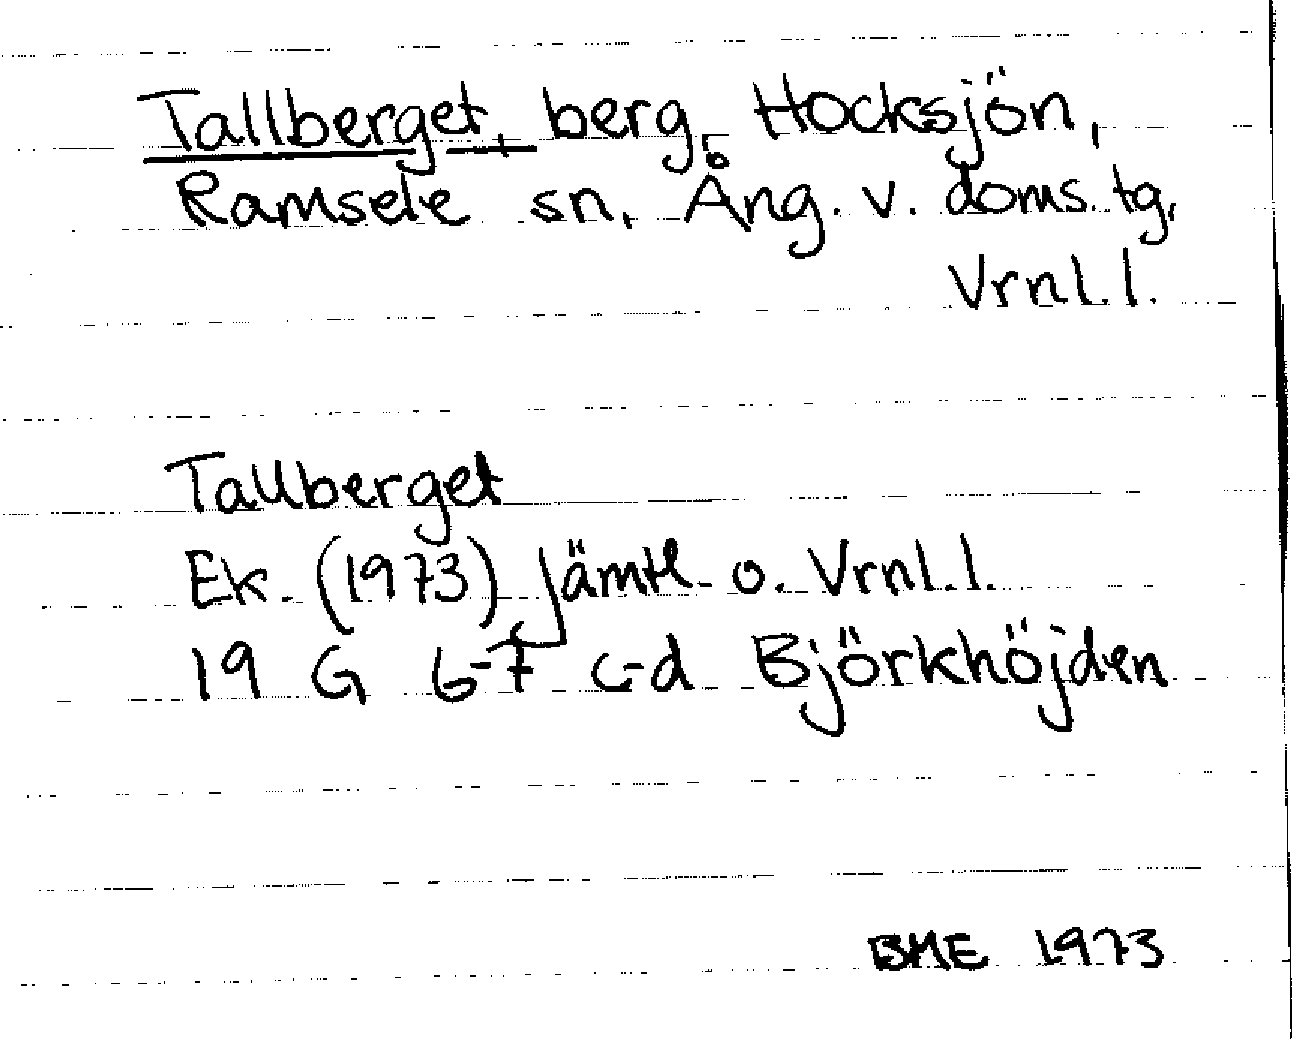 Tallberget, berg, Hocksjön,
Ramsele sn, Ång. v. doms. tg,
Vrnl. l.
Tallberget
Ek. (1973) Jämtl. o. Vrnl. l.
19 G 6-7 c-d Björkhöjden
BME 1973